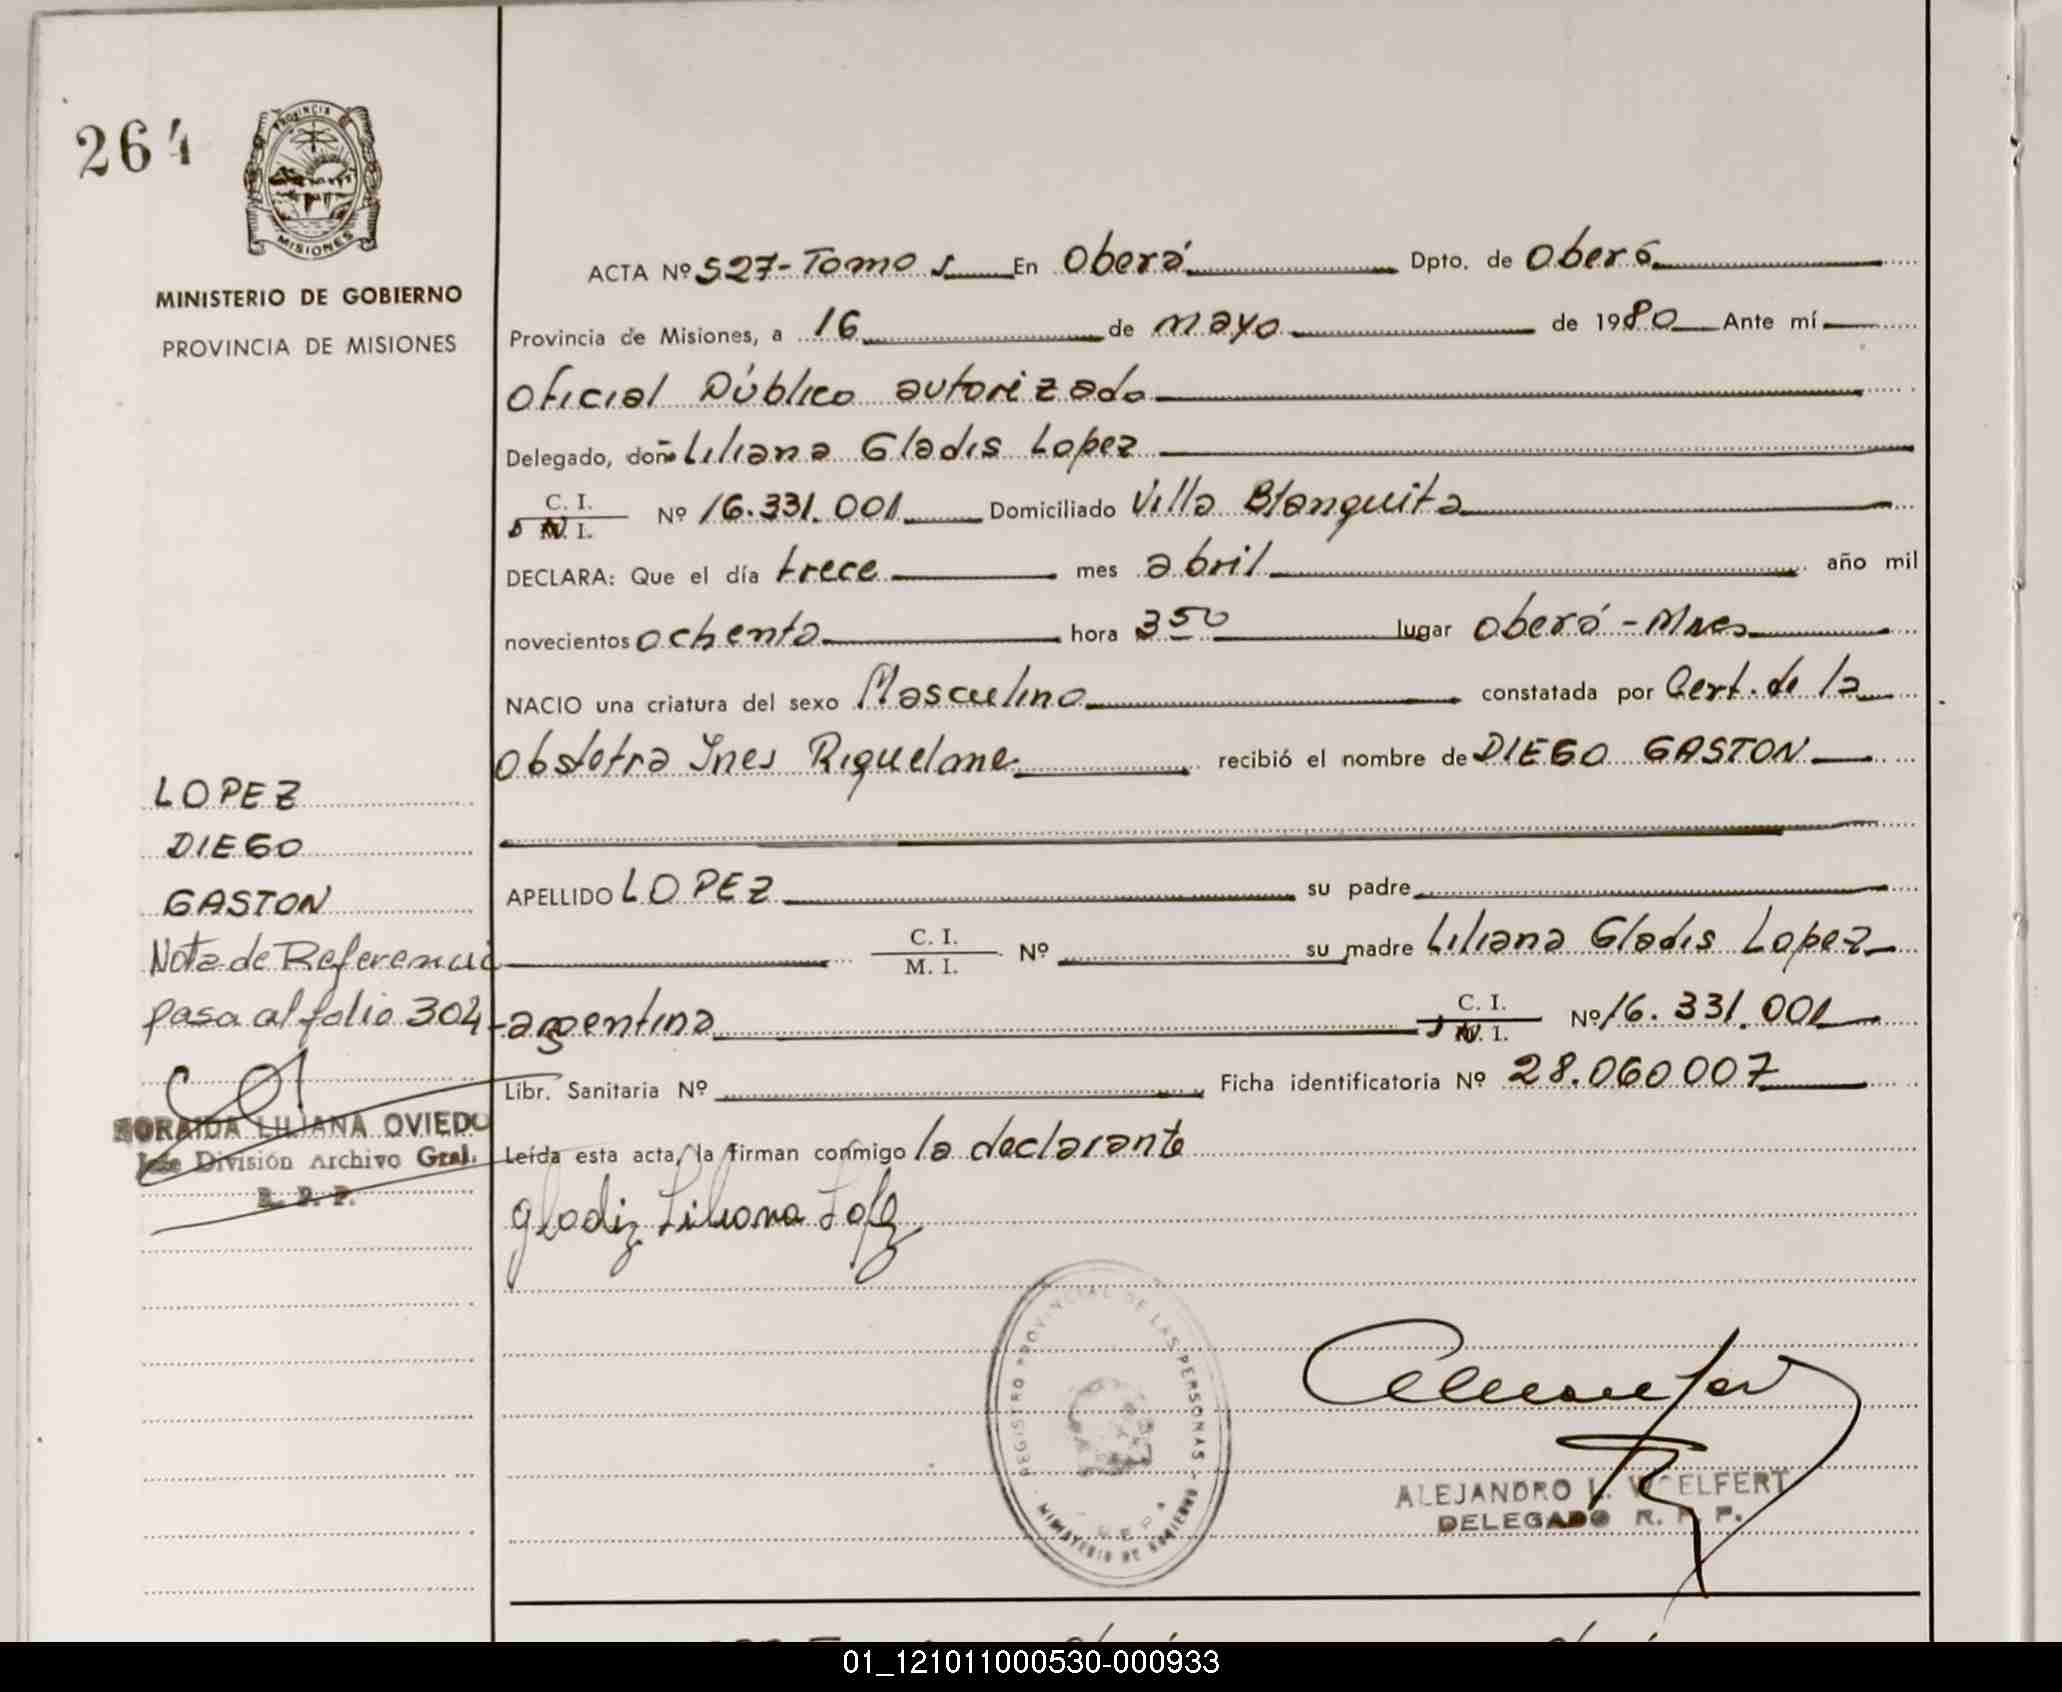 264
PROVINCIA
MISIONES
MINISTERIO DE GOBIERNO
PROVINCIA DE MISIONES
ACTA Nº 527-Tomo I En Oberá Dpto. de Oberá
Provincia de Misiones, a 16 de mayo de 1980 Ante mí
Oficial Público autorizado
Delegado, doña Liliana Gladis Lopez
C. I.
D N. I. Nº 16.331.001 Domiciliado Villa Blanquita
DECLARA: Que el día trece mes abril año mil
novecientos ochenta hora 3 50 lugar Oberá - Mnes
NACIO una criatura del sexo Masculino constatada por Cert. de la
Obstetra Ines Riquelme recibió el nombre de DIEGO GASTON
LOPEZ
DIEGO
GASTON
Nota de Referencia
pasa al folio 304
ZORAIDA LILIANA OVIEDO
Jefe División Archivo Gral.
R. P. P.
APELLIDO LOPEZ su padre
C. I.
M. I. Nº su madre Liliana Gladis Lopez
-argentina C. I.
D N. I. Nº 16.331.001
Libr. Sanitaria Nº Ficha identificatoria Nº 28.060007
Leída esta acta, la firman conmigo la declarante
Gladiz Liliana Lopez
REGISTRO PROVINCIAL DE LAS PERSONAS
MINISTERIO DE GOBIERNO
ALEJANDRO L. WOELFERT
DELEGADO R. P. P.
01_121011000530-000933